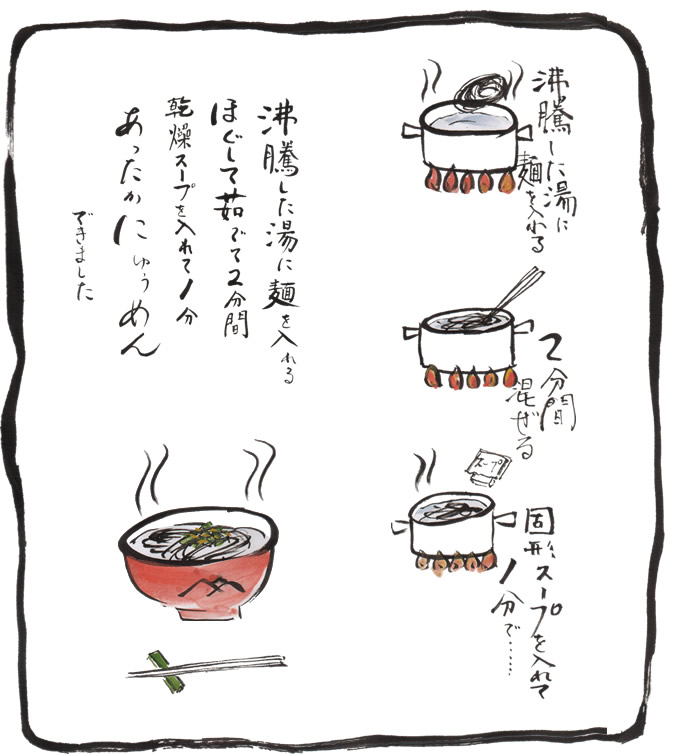 沸騰した湯に
麺を入れる
2分間
混ぜる
スープ
固形スープを入れて
1分で……
沸騰した湯に麺を入れる
ほぐして茹でて2分間
乾燥スープを入れて1分
あったかにゅうめん
できました